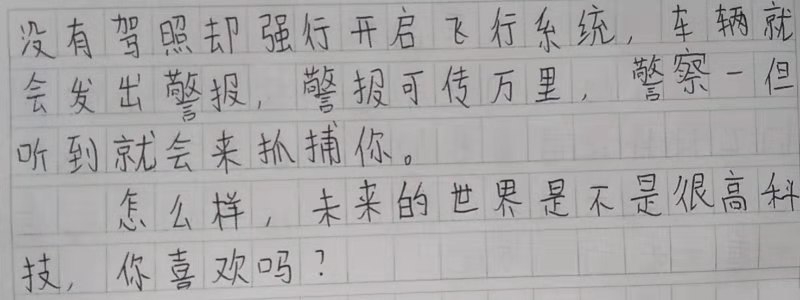 没有驾照却强行开启飞行系统，车辆就
会发出警报，警报可传万里，警察一但
听到就会来抓捕你。
怎么样，未来的世界是不是很高科
技，你喜欢吗？